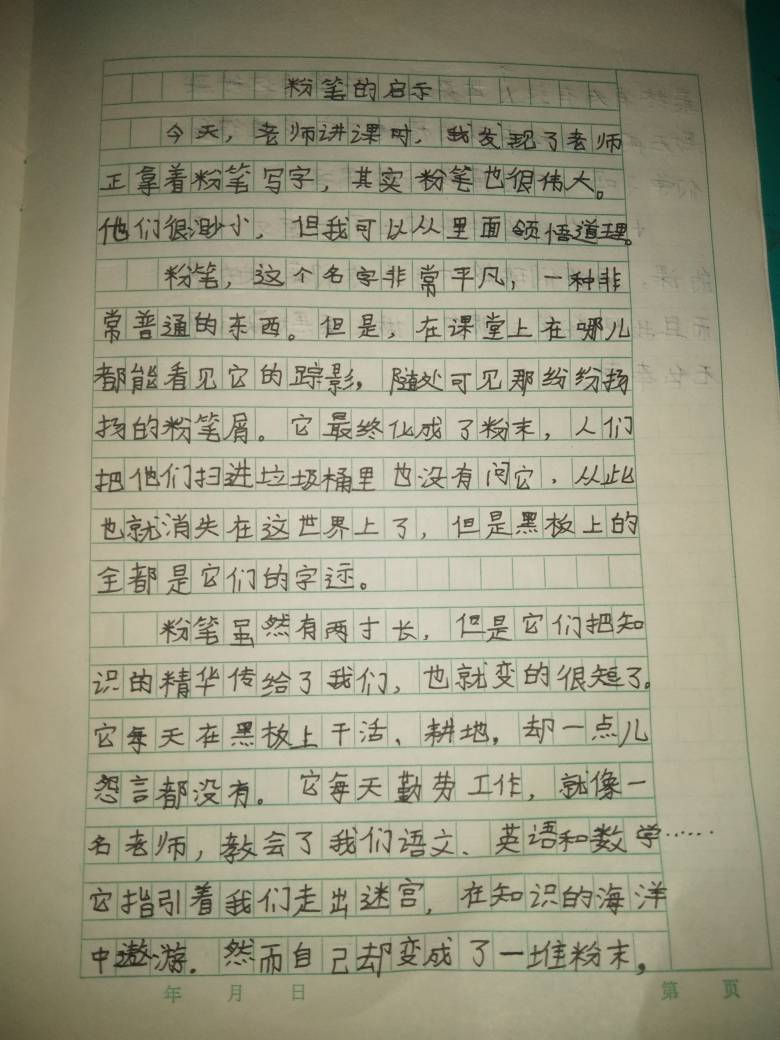 粉笔的启示
今天，老师讲课时，我发现了老师
正拿着粉笔写字，其实粉笔也很伟大。
他们很渺小，但我可以从里面领悟道理。
粉笔，这个名字非常平凡，一种非
常普通的东西。但是，在课堂上在哪儿
都能看见它的踪影，随处可见那纷纷扬
扬的粉笔屑。它最终化成了粉末，人们
把他们扫进垃圾桶里也没有问它，从此
也就消失在这世界上了，但是黑板上的
全都是它们的字迹。
粉笔虽然有两寸长，但是它们把知
识的精华传给了我们，也就变的很短了。
它每天在黑板上干活、耕地，却一点儿
怨言都没有。它每天勤劳工作，就像一
名老师，教会了我们语文、英语和数学……
它指引着我们走出迷宫，在知识的海洋
中遨游．然而自己却变成了一堆粉末，
年 月 日
第 页